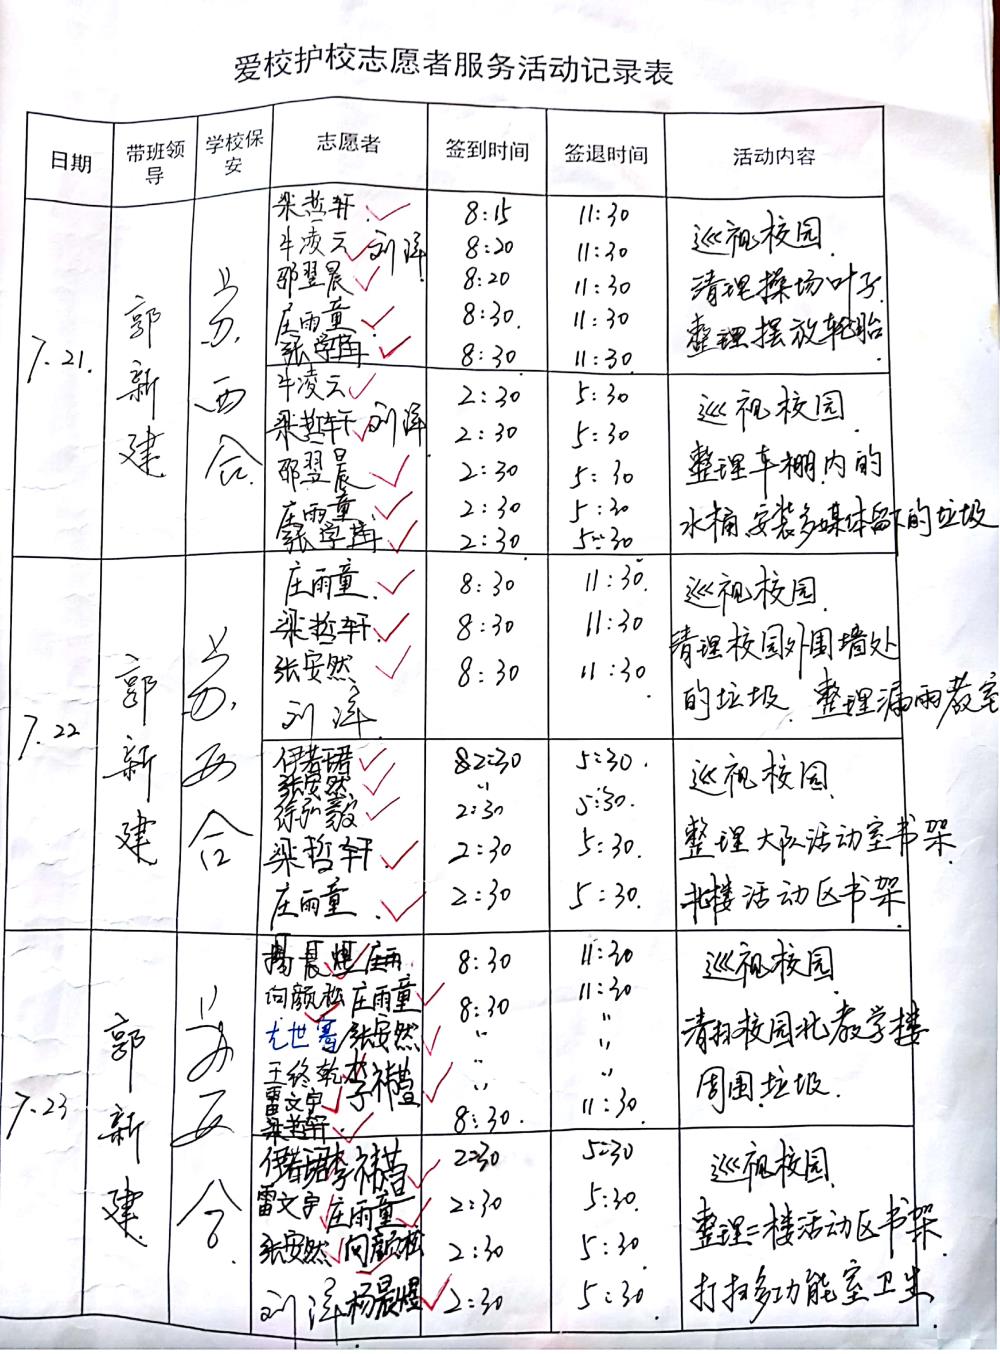 爱校护校志愿者服务活动记录表
日期 带班领导 学校保安 志愿者 签到时间 签退时间 活动内容
7.21. 郭新建
梁哲轩 8:15 11:30 巡视校园
牛凌云 刘洋 8:20 11:30
邵翌晨 8:20 11:30 清理操场叶子
庄雨童 8:30. 11:30 整理摆放轮胎
张学 8:30 11:30.
牛凌云 2:30 5:30 巡视校园
梁哲轩 刘洋 2:30 5:30
邵翌晨 2:30 5:30 整理车棚内的
庄雨童 2:30 5:30 水桶、安装多媒体留下的垃圾
张学 2:30 5:30
7.22 郭新建
庄雨童. 8:30 11:30. 巡视校园.
梁哲轩 8:30 11:30 清理校园外围墙处
张安然 8:30 11:30. 的垃圾. 整理漏雨教室
刘洋
伊若珺 2:30 5:30. 巡视校园.
张安然 "
徐弘毅 2:30 5:30. 整理大队活动室书架.
梁哲轩 2:30 5:30.
庄雨童. 2:30 5:30. 北楼活动区书架.
7.23 郭新建
杨晨煜 庄雨 8:30 11:30 巡视校园.
向颜松 庄雨童 8:30 11:30
尤世骞 张安然 " " 清扫校园北教学楼
王终乾 " " 周围垃圾.
雷文宇 李祎萱
梁哲轩. 8:30. 11:30.
伊若珺 李祎萱 2:30 5:30 巡视校园.
雷文宇 庄雨童 2:30 5:30. 整理二楼活动区书架.
张安然 向颜松 2:30 5:30
刘洋 杨晨煜 2:30 5:30 打扫多功能室卫生.